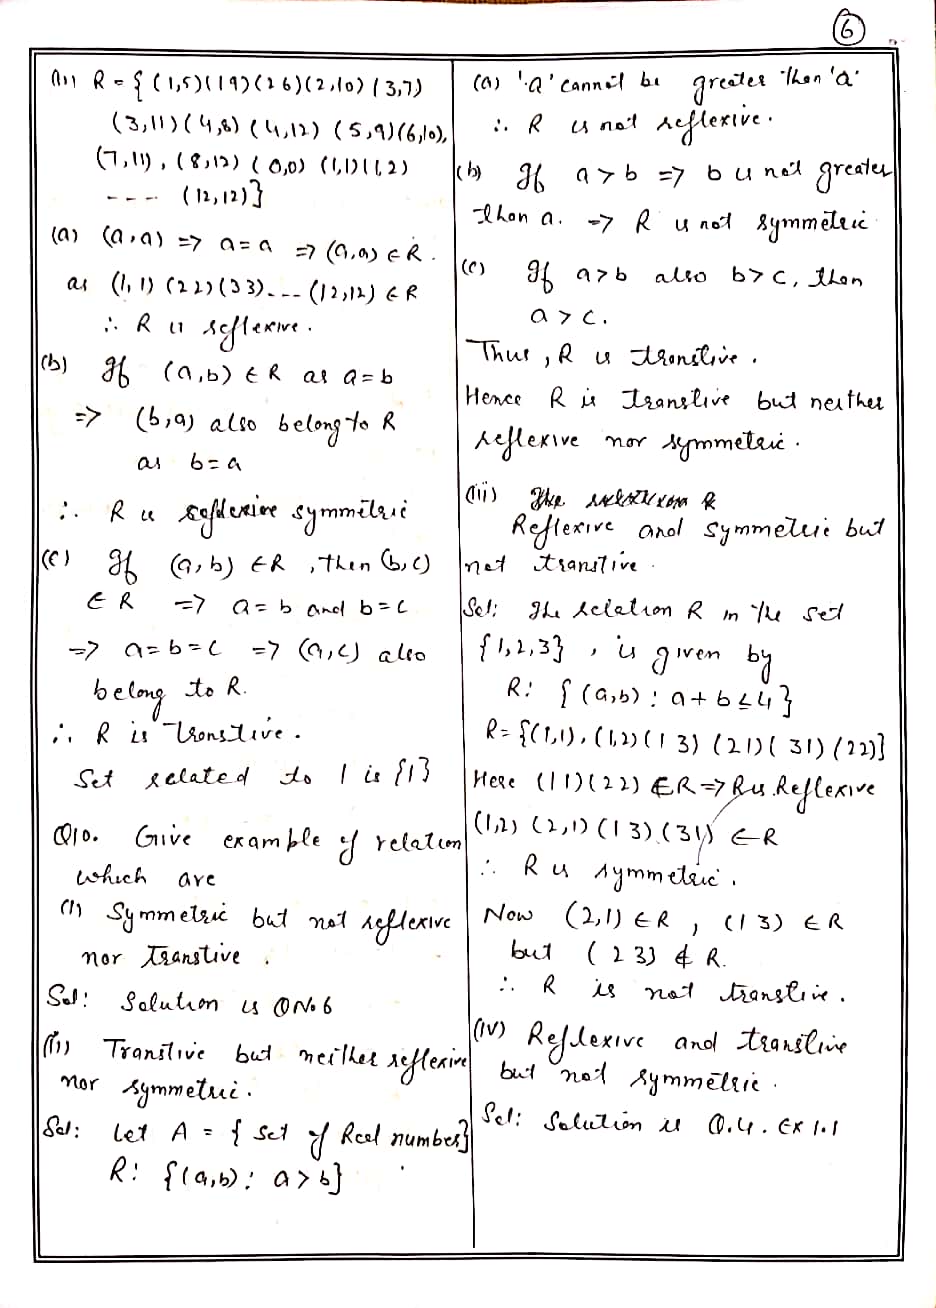 6
(ii) R = { (1,5)(19)(26)(2,10) (3,7)
(3,11) (4,8) (4,12) (5,9)(6,10),
(7,11), (8,12) (0,0) (1,1)(1,2)
---- (12,12)}
(a) (a,a) => a=a => (a,a) ∈ R.
as (1,1) (22)(33)--- (12,12) ∈ R
∴ R is reflexive.
(b) If (a,b) ∈ R as a=b
=> (b,a) also belong to R
as b=a
∴ R is symmetric
(c) If (a,b) ∈ R, then (b,c)
∈ R => a=b and b=c
=> a=b=c => (a,c) also
belong to R.
∴ R is Transtive.
Set related to 1 is {1}
Q10. Give example of relation
which are
(i) Symmetric but not reflexive
nor Transtive.
Sol: Solution is Q No. 6
(ii) Transtive but neither reflexive
nor symmetric.
Sol: Let A = { set of Real number}
R: {(a,b): a > b}
(a) 'a' cannot be greater then 'a'
∴ R is not reflexive.
(b) If a>b => b is not greater
then a. => R is not symmetric
(c) If a>b also b>c, then
a > c.
Thus, R is transtive.
Hence R is Transtive but neither
reflexive nor symmetric.
(iii) The relation R
Reflexive and symmetric but
not transtive.
Sol: The relation R in the set
{1,2,3}, is given by
R: { (a,b): a+b≤4}
R= {(1,1), (1,2)(1 3) (21)( 31) (22)}
Here (11)(22) ∈R=> R is Reflexive
(1,2) (2,1) (1 3) (31) ∈ R
∴ R is symmetric.
Now (2,1) ∈ R, (1 3) ∈ R
but (2 3) ∉ R.
∴ R is not transtive.
(iv) Reflexive and transtive
but not symmetric.
Sol: Solution is Q.4. Ex 1.1